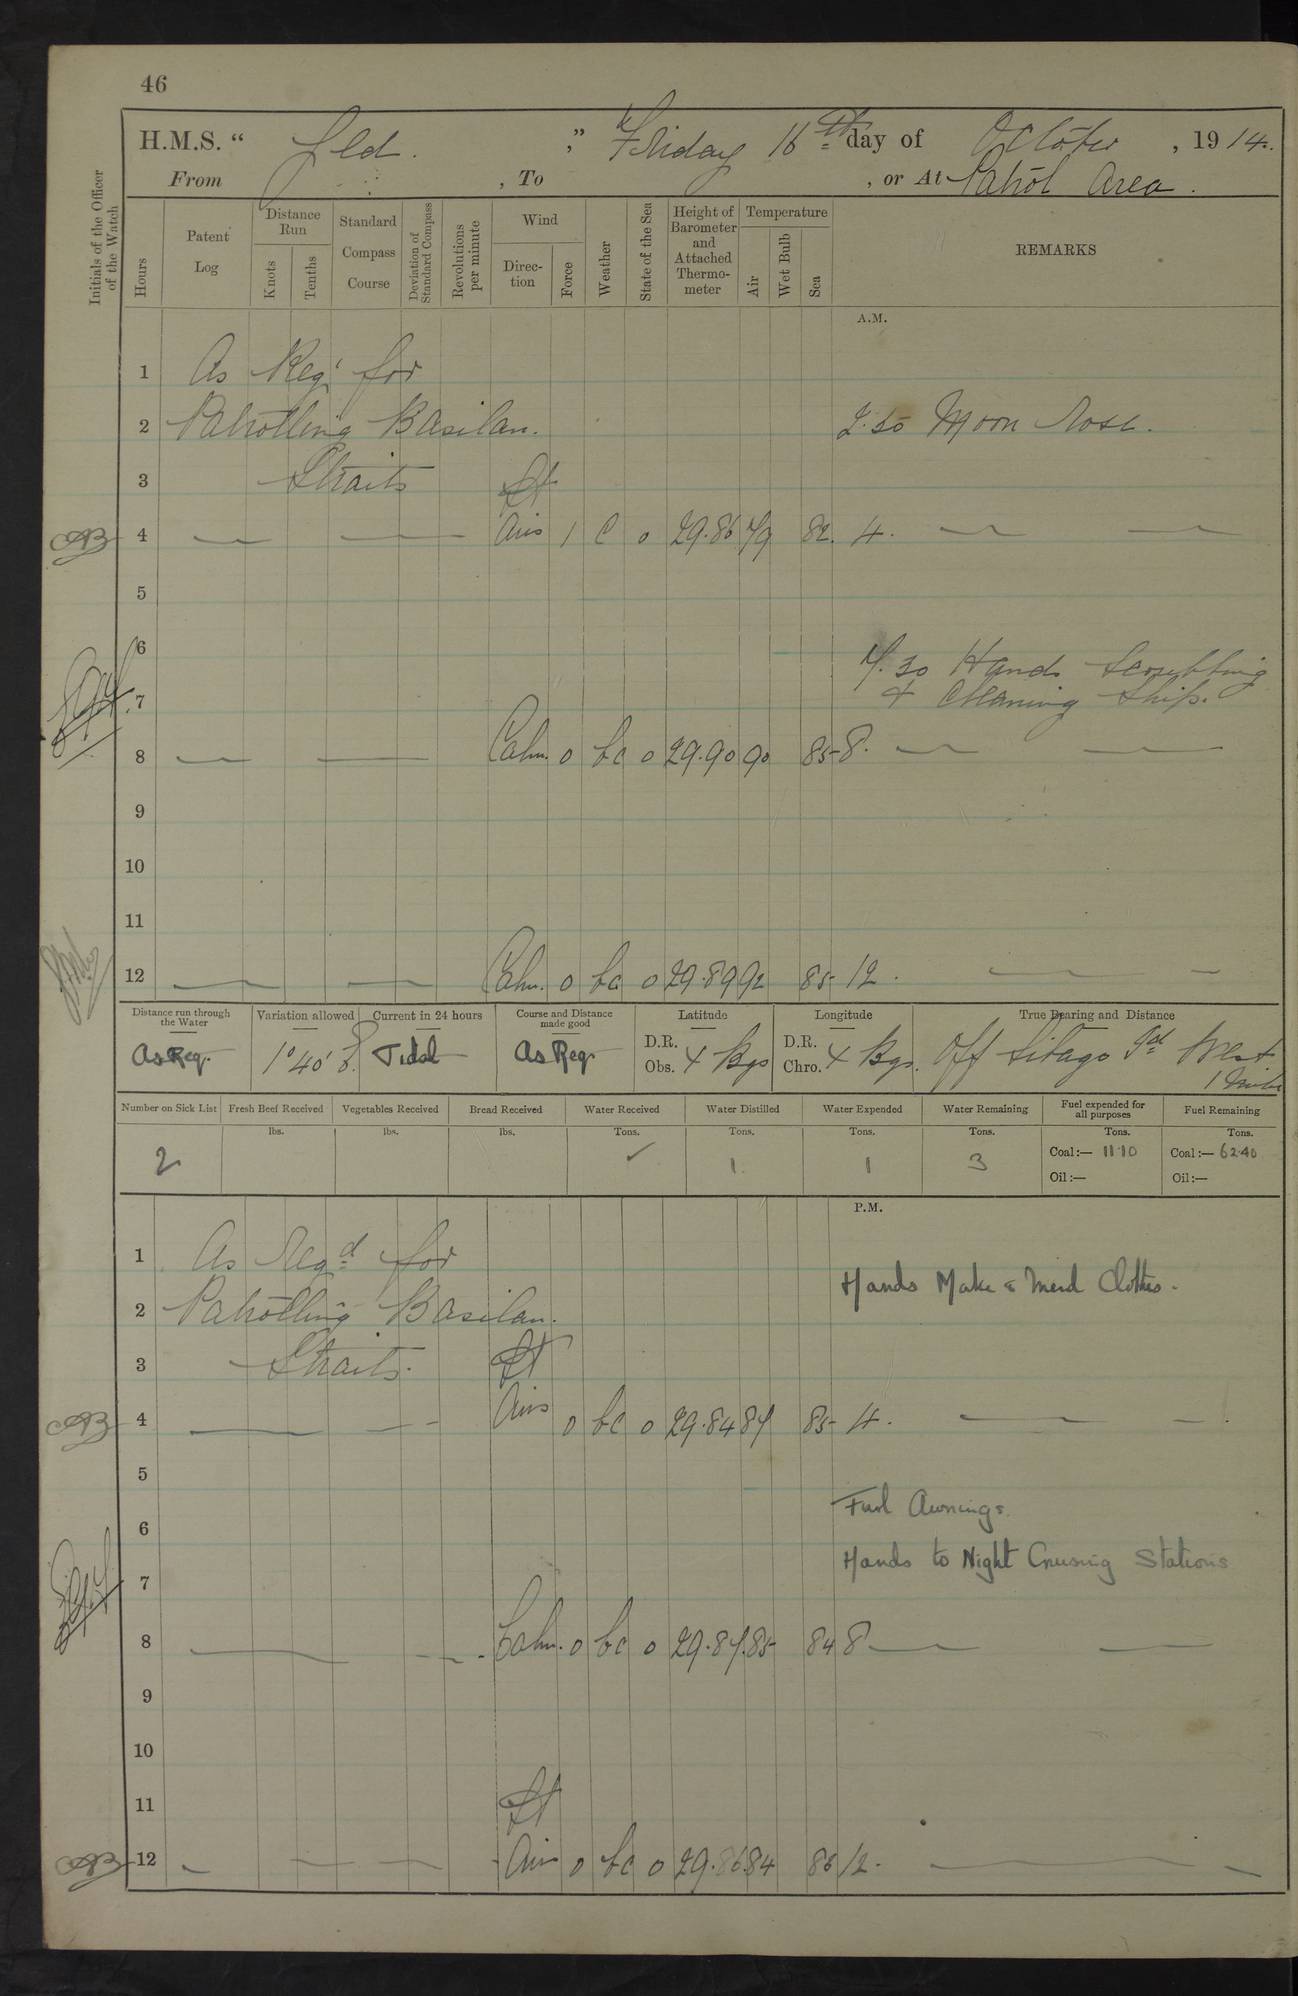 46
H.M.S. “ Yed. ” Friday 16th day of October, 1914.
From , To , or At Patrol Area.
Initials of the Officer of the Watch
Hours
Patent Log
Distance Run
Knots
Tenths
Standard Compass Course
Deviation of Standard Compass
Revolutions per minute
Wind
Direction
Force
Weather
State of the Sea
Height of Barometer and Attached Thermometer
Temperature
Air
Wet Bulb
Sea
REMARKS
A.M.
1 As Reqd for
2 Patrolling Basilan. 2.50 Moon Rose.
3 Straits Lt
4 Airs 1 c 0 29.86 79 82. 4.
5
6
7.30 Hands Scrubbing
7 & Cleaning Ship.
8 Calm. 0 bc 0 29.90 90 85 8.
9
10
11
12 Calm. 0 bc 0 29.89 92 85 12.
Distance run through the Water
Variation allowed
Current in 24 hours
Course and Distance made good
Latitude
Longitude
True Bearing and Distance
As Req. 1°40' E. Tidal As Req. D.R. Obs. 4 Bgs D.R. Chro. 4 Bgs. Off Sibago Id West
1 Mile
Number on Sick List
Fresh Beef Received
Vegetables Received
Bread Received
Water Received
Water Distilled
Water Expended
Water Remaining
Fuel expended for all purposes
Fuel Remaining
lbs. lbs. lbs. Tons. Tons. Tons. Tons. Tons. Tons.
2 ✓ 1. 1 3 Coal:— 11.10 Coal:— 62.40
Oil:— Oil:—
P.M.
1 As Reqd for
Hands Make & Mend Clothes.
2 Patrolling Basilan.
3 Straits. Lt
4 Airs 0 bc 0 29.84 87 85 4.
5
Furl Awnings.
6
Hands to Night Cruising Stations
7
8 Calm. 0 bc 0 29.87 85 84 8
9
10
11 Lt
12 Airs 0 bc 0 29.86 84 86 12.